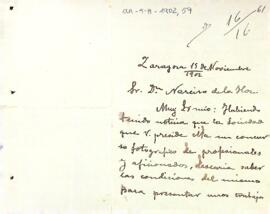 AA-9-A-1902, 59
16/16
61
Zaragoza 15 de Noviembre
1902
Sr. Dn. Narciso de la
Muy Sr mio: Habiendo
tenido noticia que la Sociedad
que V. preside un concur
so fotografico de profesionales
y aficionados, desearia saber
las condiciones del mismo
para presentar unos trabajos